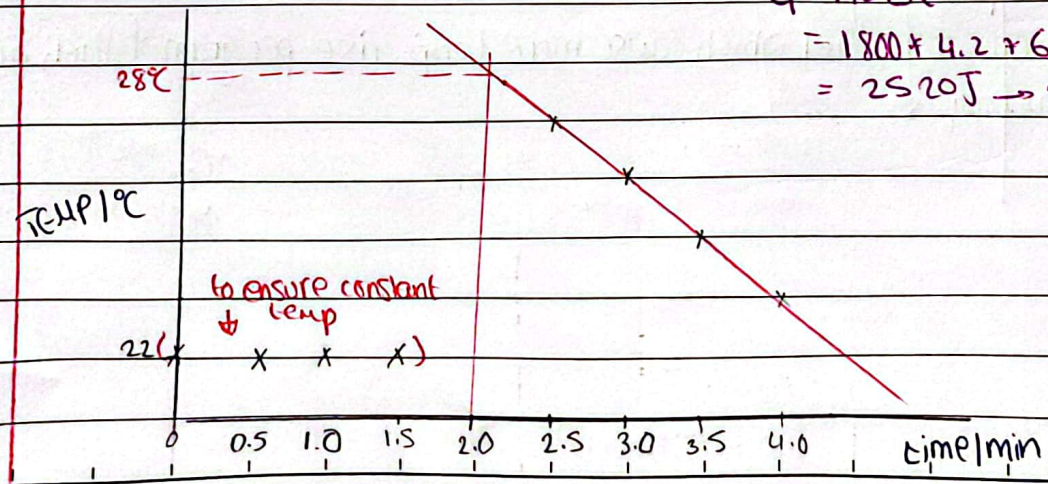 = 1800 * 4.2 * 6
= 2520J →
28℃
TEMP/℃
to ensure constant
↓ temp
22( x x x x )
0 0.5 1.0 1.5 2.0 2.5 3.0 3.5 4.0 time/min